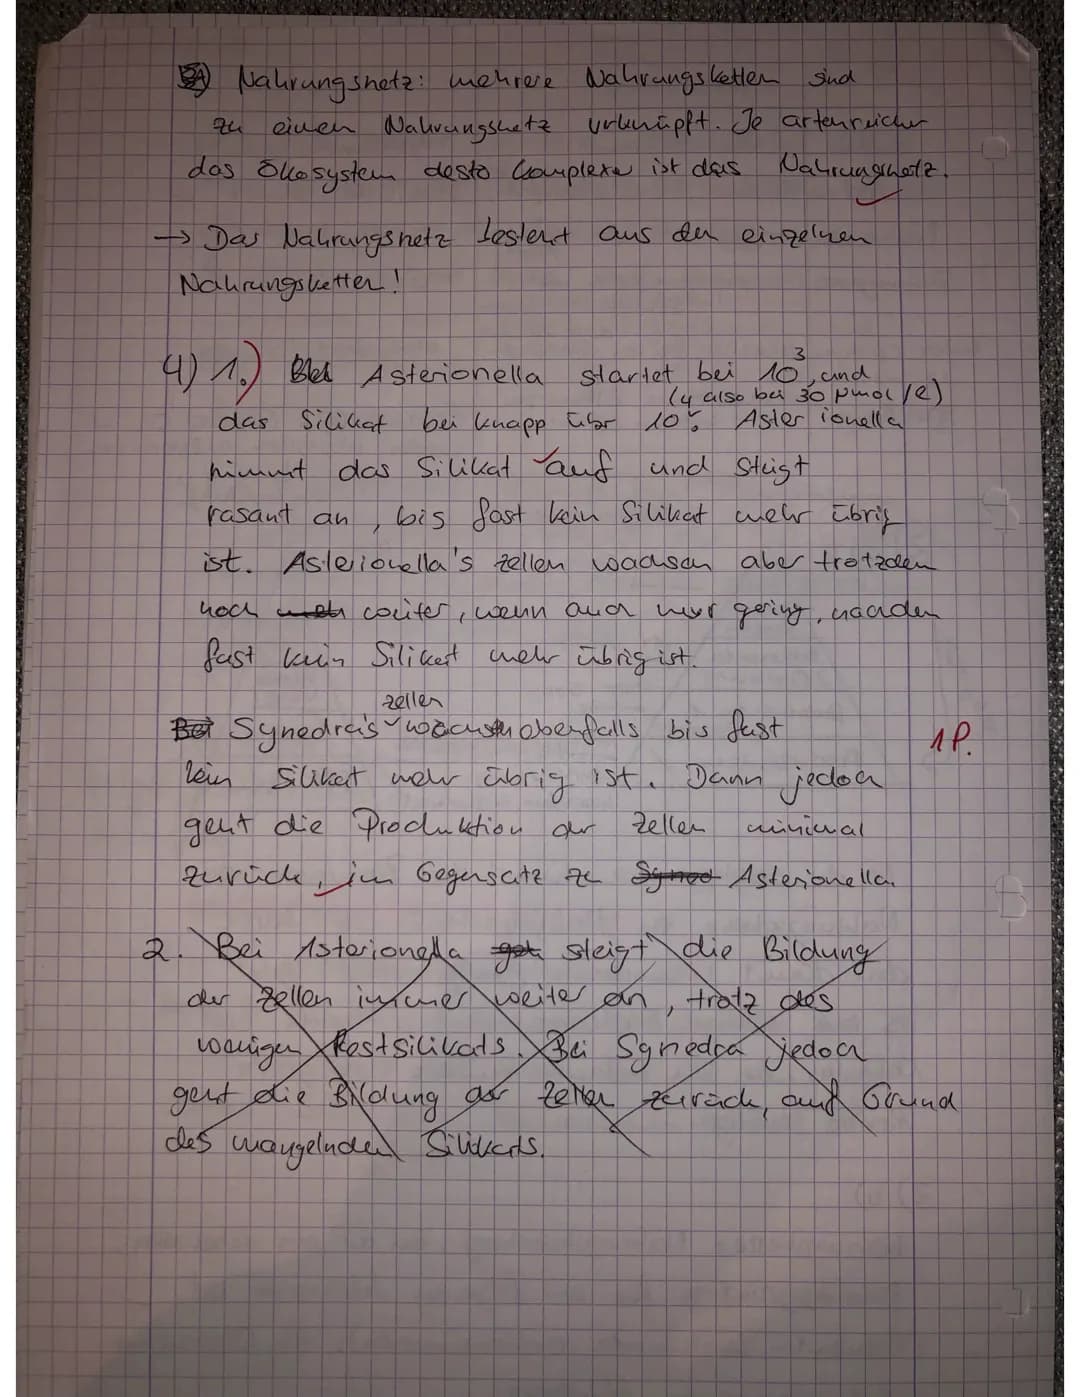 Nahrungsnetz: mehrere Nahrungsketten sind
zu einen Nahrungsnetz verknüpft. Je artenreicher
das Ökosystem desto komplexer ist das Nahrungsnetz.
→ Das Nahrungsnetz besteht aus den einzelnen
Nahrungsketten!
4) 1.) Asterionella startet bei 10³ und
(4 also bei 30 µmol/l)
das Silikat bei knapp über 10⁵. Asterionella
nimmt das Silikat auf und steigt
rasant an, bis fast kein Silikat mehr übrig
ist. Asterionella's Zellen wachsen aber trotzdem
noch weiter, wenn auch nur gering, nachdem
fast kein Silikat mehr übrig ist.
Zellen
Bei Synedra's wachsen ebenfalls bis fast
1P.
kein Silikat mehr übrig ist. Dann jedoch
geht die Produktion der Zellen minimal
zurück, im Gegensatz zu Syned Asterionella.
2. Bei Asterionella geht steigt die Bildung
der Zellen immer weiter an, trotz des
wenigen Restsilikats. Bei Synedra jedoch
geht die Bildung der Zellen zurück, auf Grund
des mangelnden Silikats.